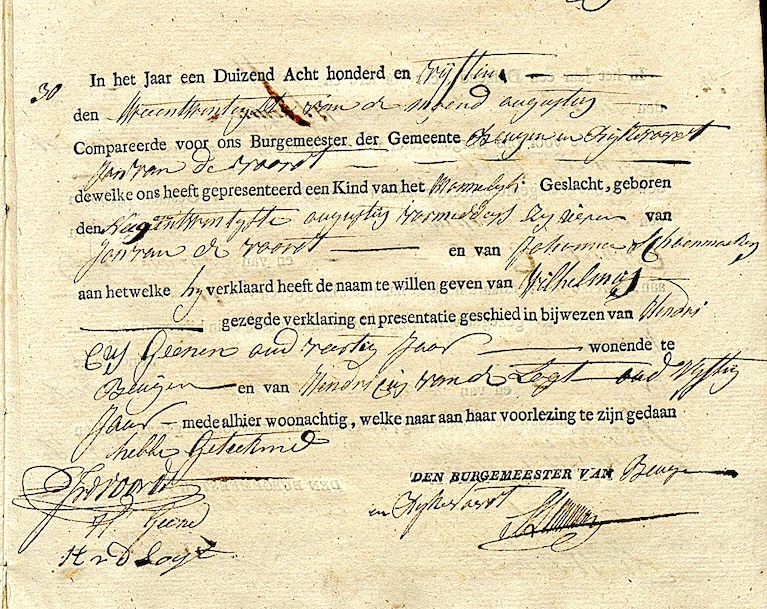 30
In het Jaar een Duizend Acht honderd en vijftien
den van de maend augusty
Compareerde voor ons Burgemeester der Gemeente Beugen en Rijkevoort
Jan van de voordt
dewelke ons heeft gepresenteerd een Kind van het Mannelyk Geslacht, geboren
den augusty voormiddags van
Jan van de voordt en van Johanna Schoenmakers
aan hetwelke hy verklaard heeft de naam te willen geven van Wilhelmus
gezegde verklaring en presentatie geschied in bijwezen van Hendri
cus Geenen oud Jaar wonende te
Beugen en van Hendricus van de Logt oud vyftig
Jaar mede alhier woonachtig, welke naar aan haar voorlezing te zijn gedaan
hebbe Geteekend
DEN BURGEMEESTER VAN Beugen
en Rykevoort
JvdVoordt
H Geene
H v D Logt